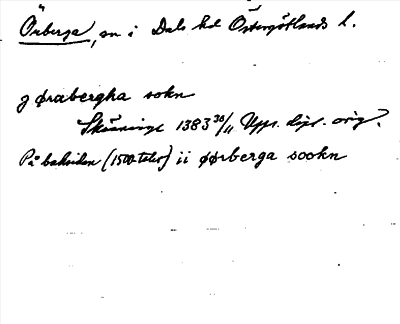 Örberga, sn i Dals hd Östergötlands l.
j ørabergha sokn
Skänninge 1383 30/11 Upps. dipl. orig.
På baksidan (1500-talet) ii øørberga sookn